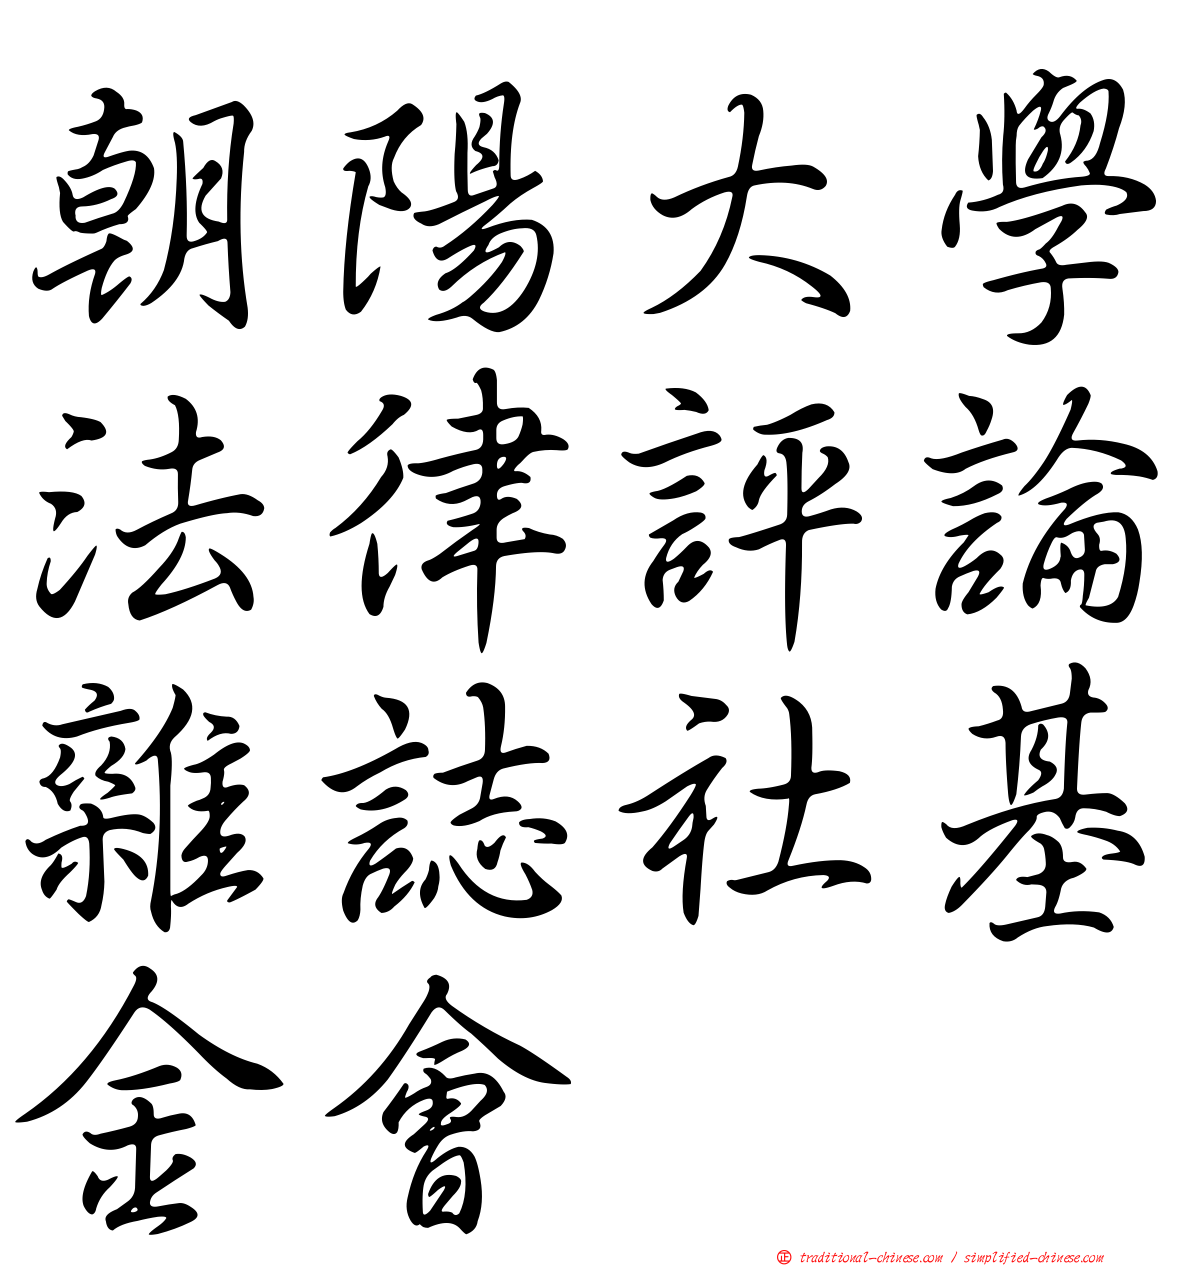 朝陽大學
法律評論
雜誌社基
金會
正 traditional-chinese.com / simplified-chinese.com